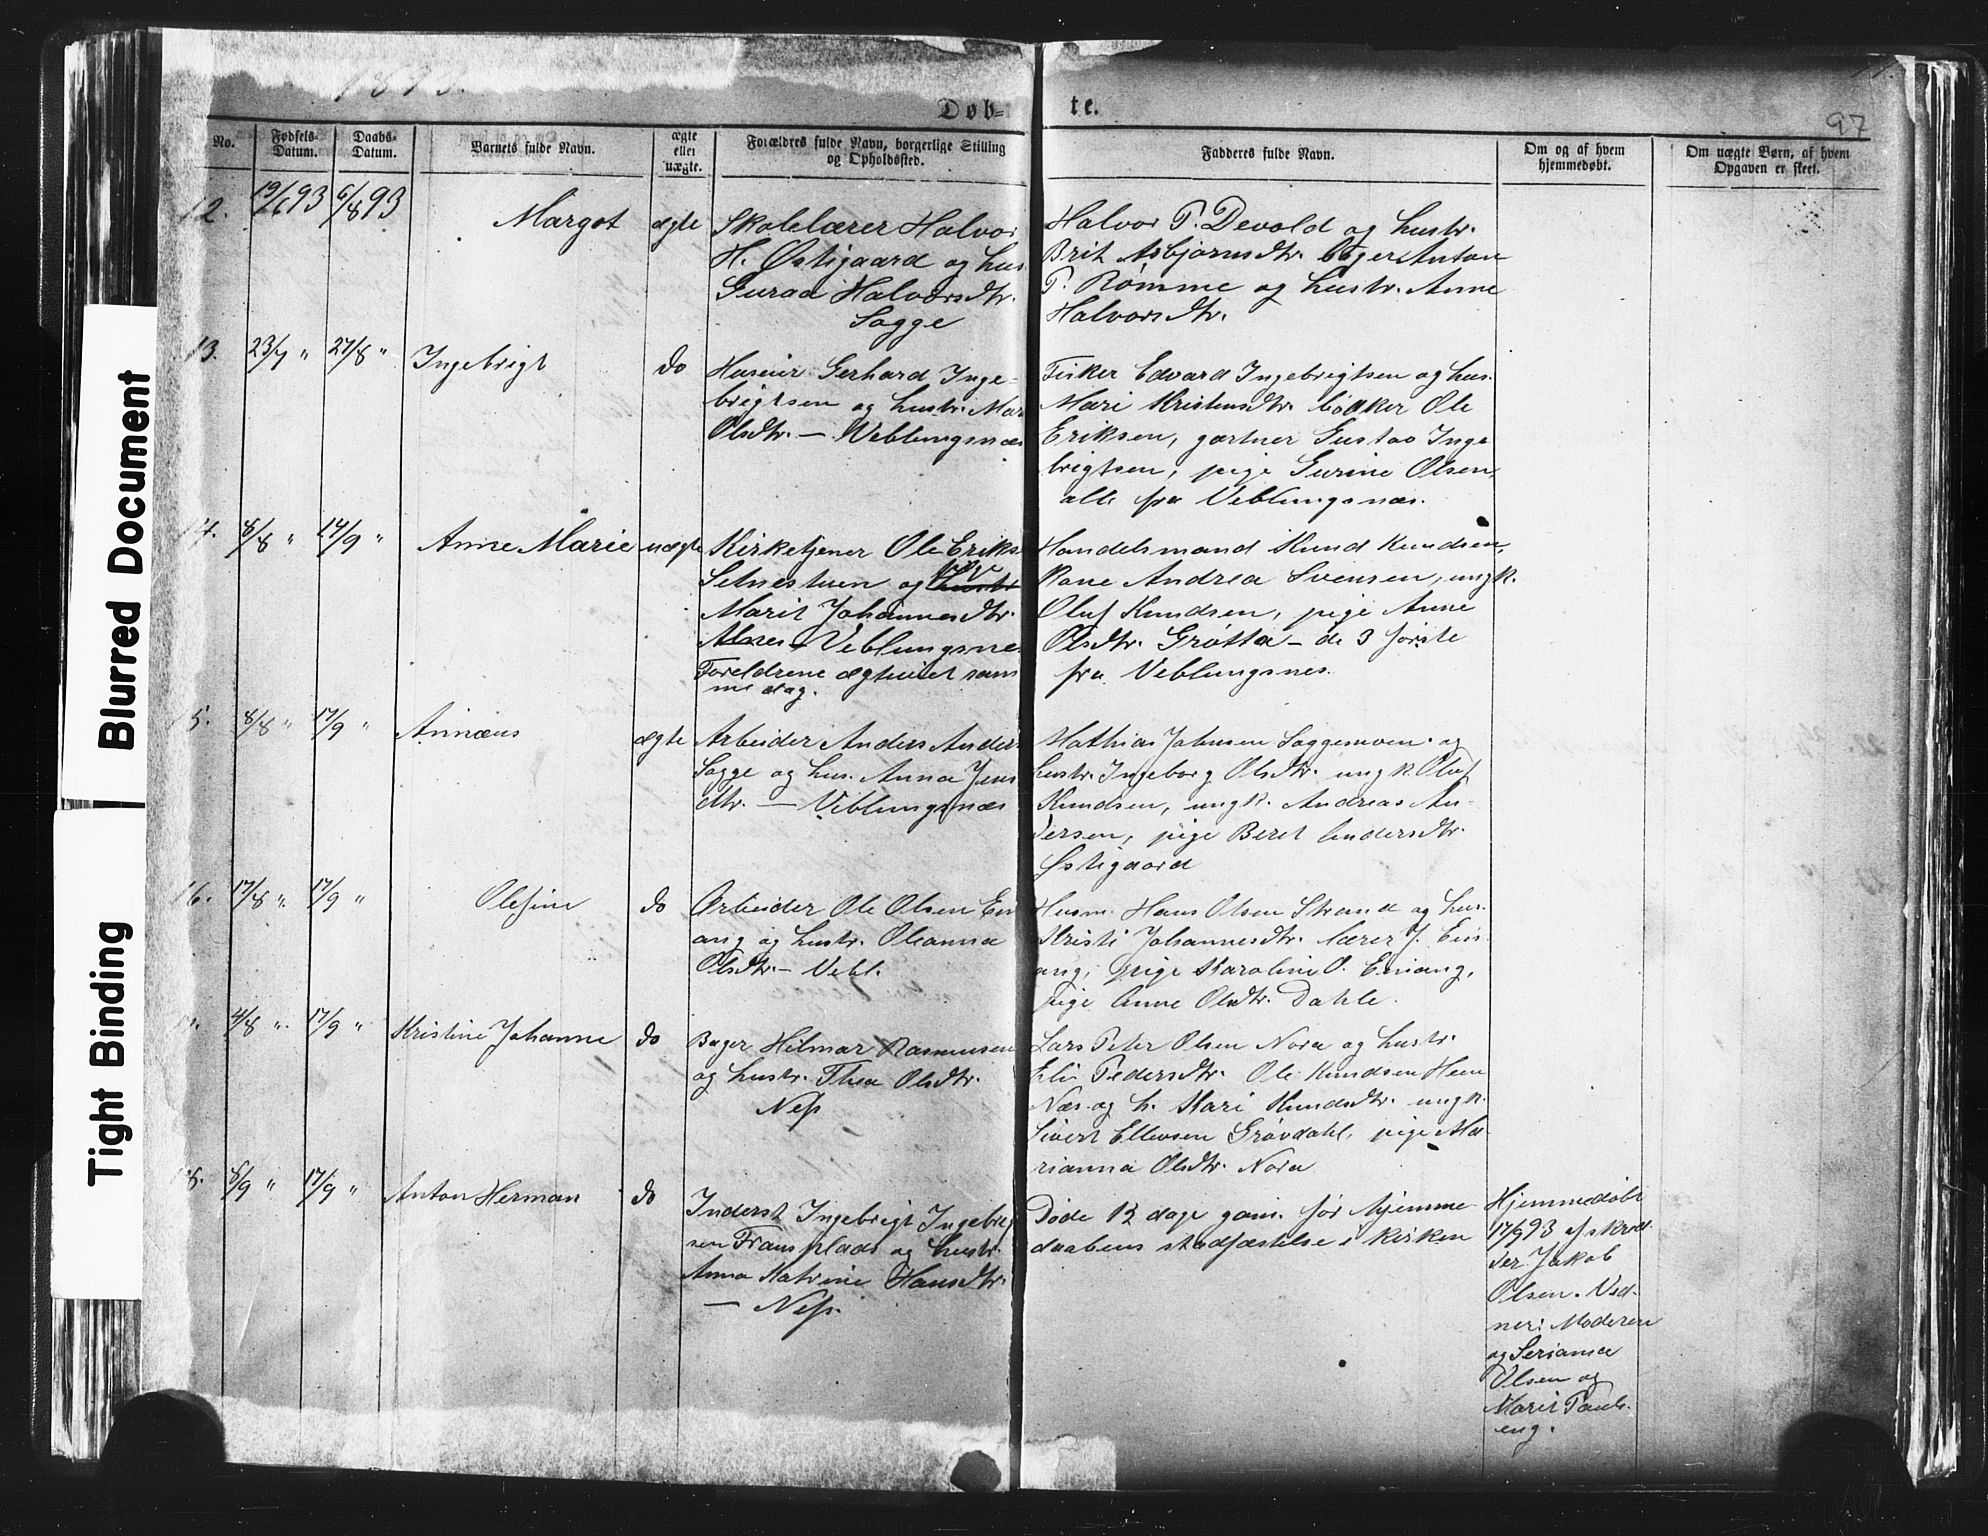 1893.
Døb-
te.
97
No.
Fødsels-
Datum.
Daabs-
Datum.
Barnets fulde Navn.
ægte
eller
uægte.
Forældres fulde Navn, borgerlige Stilling
og Opholdssted.
Fadderes fulde Navn.
Om og af hvem
hjemmedøbt.
Om uægte Børn, af hvem
Opgaven er skeet.
12.
19/6 93
6/8 93
Margot
ægte
Skolelærer Halvor
H. Østigaard og hus
Guraa Halvorsdtr.
Sogge
Halvor P. Devold og hustr.
Brit Asbjørnsdtr. Anton
P. Rømme og hustr. Anne
Halvorsdtr.
13.
23/7 "
27/8 "
Ingebrigt
do
Huseier Gerhard Inge-
brigtsen og hustr. Mar
Olsdtr. — Veblungsnæs
Fisker Edvard Ingebrigtsen og hus.
Mari Kristensdtr. bødker Ole
Eriksen, gartner Gustav Inge
brigtsen, pige Gurine Olsen,
alle fra Veblungsnæs.
14.
8/8 "
14/9 "
Anne Marie
uægte
Kirketjener Ole Eriks
Setnestuen og hustr
pige
Marit Johannesdtr.
Veblungsnes
Foreldrene ægteviet sam
me dag.
Handelsmand Knud Knudsen,
Kone Andrea Svensen, ungk.
Oluf Knudsen, pige Anne
Olsdtr. Grøtta – de 3 første
fra Veblungsnes.
15.
8/8 "
17/9 "
Annæus
ægte
Arbeider Anders Anders
Sogge og hus. Anna Jens
dtr. — Veblungsnæs
Mathias Johnsen Soggemoen og
hustr. Ingeborg Olsdtr. ungk. Oluf
Knudsen, ungk. Andreas An-
dersen, pige Beret Andersdtr.
Østigaard
16.
17/8 "
17/9 "
Olefine
do
Arbeider Ole Olsen En
ang og hustr. Oleanna
Olsdtr – Vebl.
Husm. Hans Olsen Strand og hus.
Kristi Johannesdtr. lærer J. Ein
ang, pige Karoline O. Einang,
pige Anne Olsdtr. Dahle.
4/8 "
17/9 "
Kristine Johanne
do
Bager Hilmar Rasmusen
og hustr. Thea Olsdtr.
Ness
Lars Peter Olsen Nora og hustr.
Eli Pedersdtr. Ole Knudsen Hem
Næs og h. Kari Knudsdtr. ungk.
Sivert Ellevsen Grøvdahl, pige Ma
rianna Olsdtr. Nora
18.
8/9 "
17/9 "
Anton Herman
do
Inderst Ingebrigt Ingebrig
sen Fransplads og hustr.
Anna Katrine Hansdtr.
— Ness.
Døde 12 dage gam. før hjemme
daabens stadfæstelse i kirken
Hjemmedøbt
17/9 93 af skræd
der Jakob
Olsen. Vid-
ner: Moderen
og Serianna
Olsen og
Marit Pauls
eng.
Blurred Document
Tight Binding